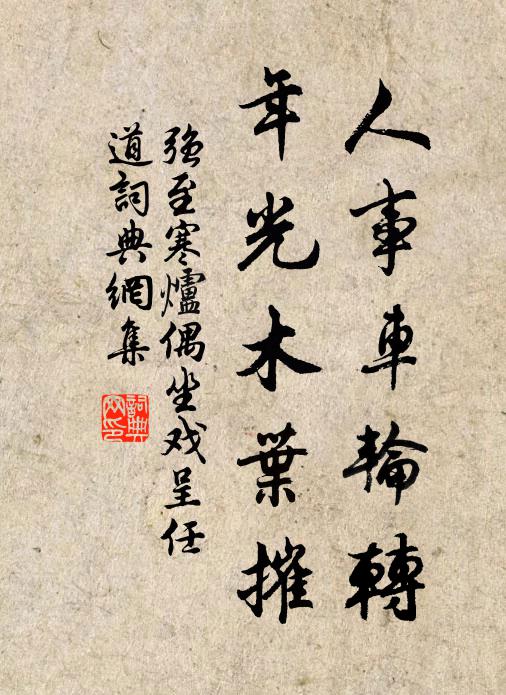 人事車輪轉
年光木葉摧
強至寒爐偶坐戏呈任
道詞典網集
詞典網印